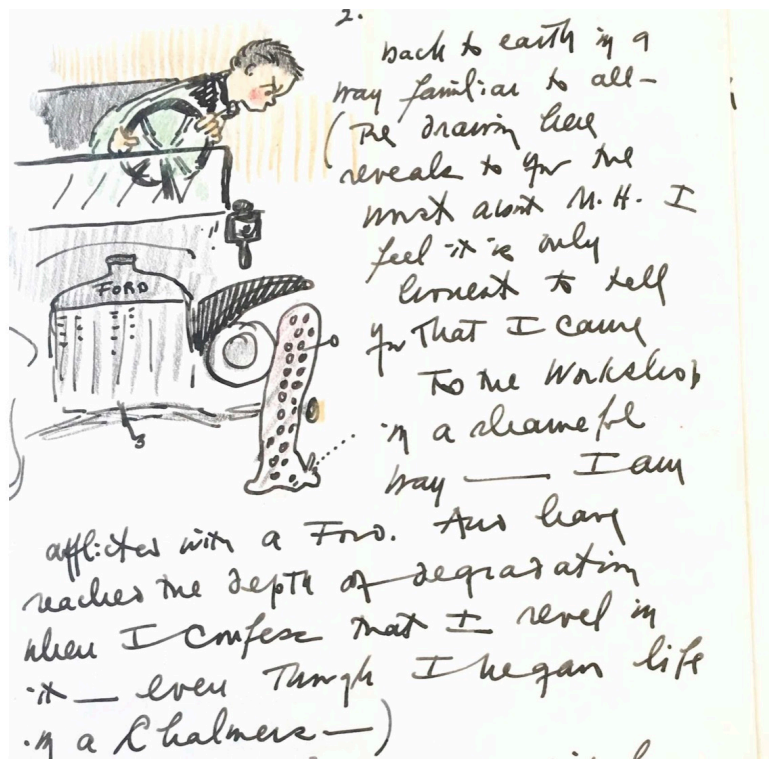 2.
back to earth in a
way familiar to all —
(The drawing here
reveals to you the
worst about M. H. I
feel it is only
honest to tell
you that I came
to the Workshop
in a shameful
way — I am
FORD
afflicted with a Ford. And have
reached the depth of degradation
when I confess that I revel in
it — even though I began life
in a Chalmers —)